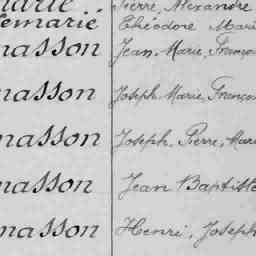 Pierre, Alexandre
lemarie Théodore Mari
masson Jean, Marie, Françoi
masson Joseph Marie, Françoi
masson Joseph, Pierre, Mari
masson Jean Baptiste
masson Henri, Joseph